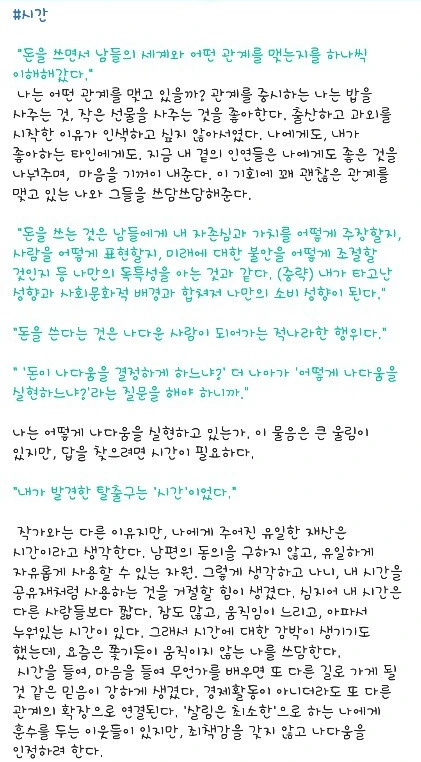 #시간
"돈을 쓰면서 남들의 세계와 어떤 관계를 맺는지를 하나씩
이해해갔다."
나는 어떤 관계를 맺고 있을까? 관계를 중시하는 나는 밥을
사주는 것, 작은 선물을 사주는 것을 좋아한다. 출산하고 과외를
시작한 이유가 인색하고 싶지 않아서였다. 나에게도, 내가
좋아하는 타인에게도. 지금 내 곁의 인연들은 나에게도 좋은 것을
나눠주며, 마음을 기꺼이 내준다. 이 기회에 꽤 괜찮은 관계를
맺고 있는 나와 그들을 쓰담쓰담해준다.
"돈을 쓰는 것은 남들에게 내 자존심과 가치를 어떻게 주장할지,
사람을 어떻게 표현할지, 미래에 대한 불안을 어떻게 조절할
것인지 등 나만의 독특성을 아는 것과 같다. (중략) 내가 타고난
성향과 사회문화적 배경과 합쳐져 나만의 소비 성향이 된다."
"돈을 쓴다는 것은 나다운 사람이 되어가는 적나라한 행위다."
" '돈이 나다움을 결정하게 하느냐?' 더 나아가 '어떻게 나다움을
실현하느냐?'라는 질문을 해야 하니까."
나는 어떻게 나다움을 실현하고 있는가. 이 물음은 큰 울림이
있지만, 답을 찾으려면 시간이 필요하다.
"내가 발견한 탈출구는 '시간'이었다."
작가와는 다른 이유지만, 나에게 주어진 유일한 재산은
시간이라고 생각한다. 남편의 동의를 구하지 않고, 유일하게
자유롭게 사용할 수 있는 자원. 그렇게 생각하고 나니, 내 시간을
공유재처럼 사용하는 것을 거절할 힘이 생겼다. 심지어 내 시간은
다른 사람들보다 짧다. 잠도 많고, 움직임이 느리고, 아파서
누워있는 시간이 있다. 그래서 시간에 대한 강박이 생기기도
했는데, 요즘은 쫓기듯이 움직이지 않는 나를 쓰담한다.
시간을 들여, 마음을 들여 무언가를 배우면 또 다른 길로 가게 될
것 같은 믿음이 강하게 생겼다. 경제활동이 아니더라도 또 다른
관계의 확장으로 연결된다. '살림은 최소한'으로 하는 나에게
훈수를 두는 이웃들이 있지만, 죄책감을 갖지 않고 나다움을
인정하려 한다.